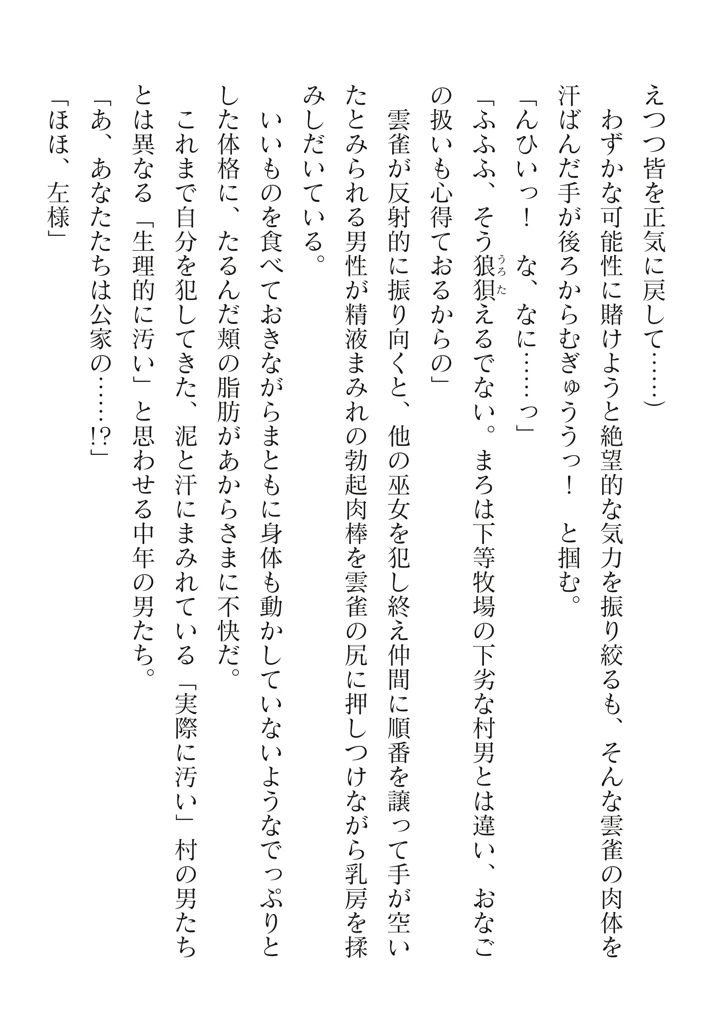 えつつ皆を正気に戻して……）
　わずかな可能性に賭けようと絶望的な気力を振り絞るも、そんな雲雀の肉体を
汗ばんだ手が後ろからむぎゅううっ！　と掴む。
「んひいっ！　な、なに……っ」
「ふふふ、そう狼狽えるでない。まろは下等牧場の下劣な村男とは違い、おなご
の扱いも心得ておるからの」
　雲雀が反射的に振り向くと、他の巫女を犯し終え仲間に順番を譲って手が空い
たとみられる男性が精液まみれの勃起肉棒を雲雀の尻に押しつけながら乳房を揉
みしだいている。
　いいものを食べておきながらまともに身体も動かしていないようなでっぷりと
した体格に、たるんだ頬の脂肪があからさまに不快だ。
　これまで自分を犯してきた、泥と汗にまみれている「実際に汚い」村の男たち
とは異なる「生理的に汚い」と思わせる中年の男たち。
「あ、あなたたちは公家の……!?」
「ほほ、左様」